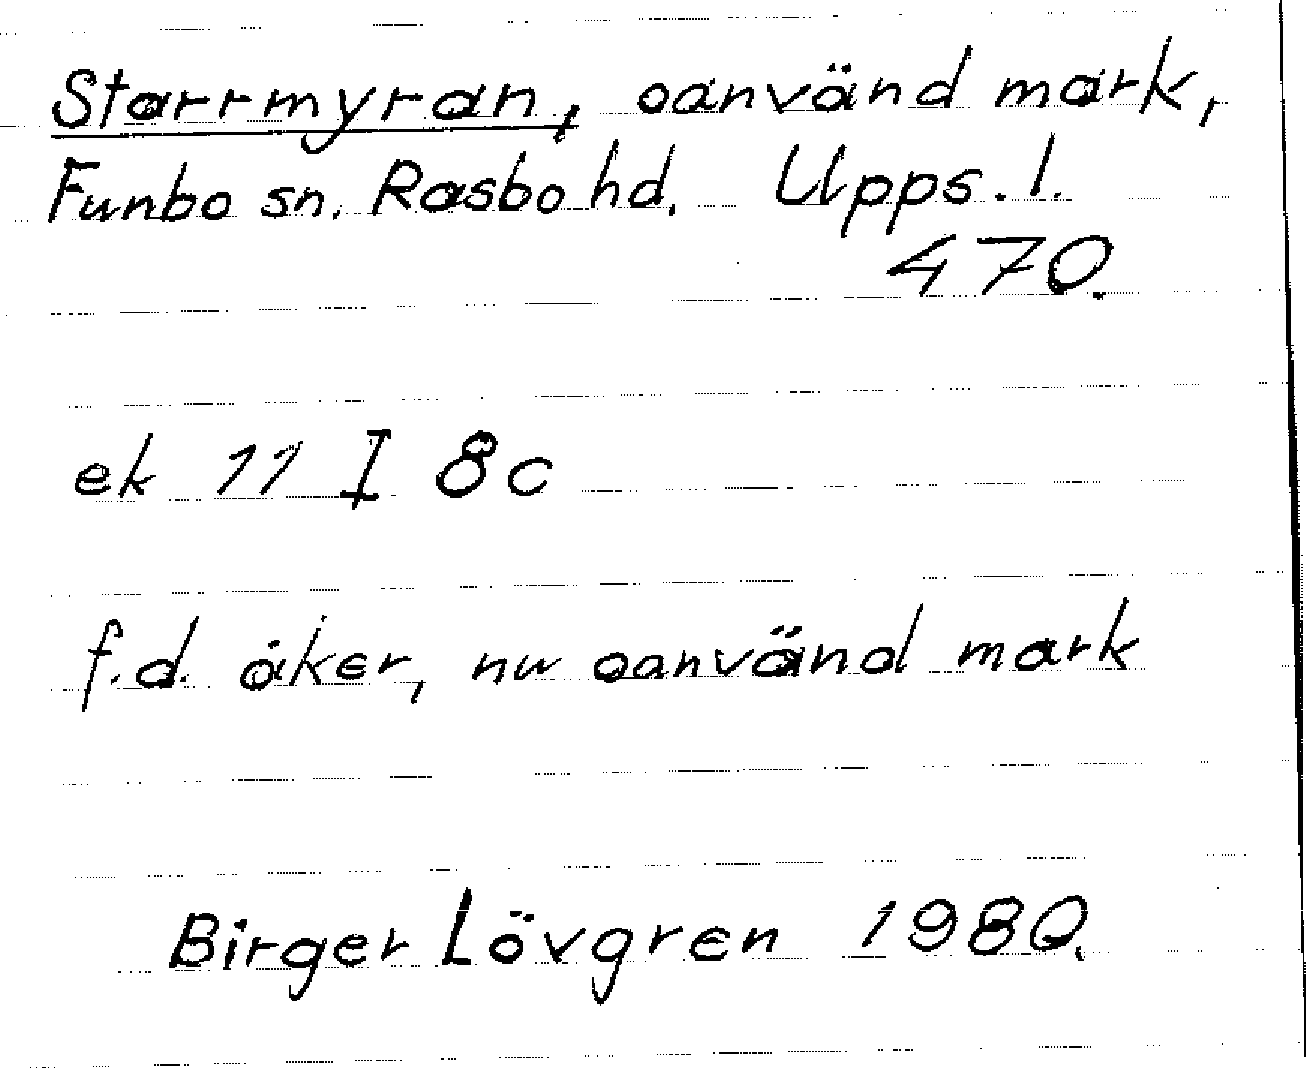 Starrmyran, oanvänd mark,
Funbo sn. Rasbo hd. Upps. l.
470.
ek 11 I 8c
f.d. åker, nu oanvänd mark
Birger Lövgren 1980.